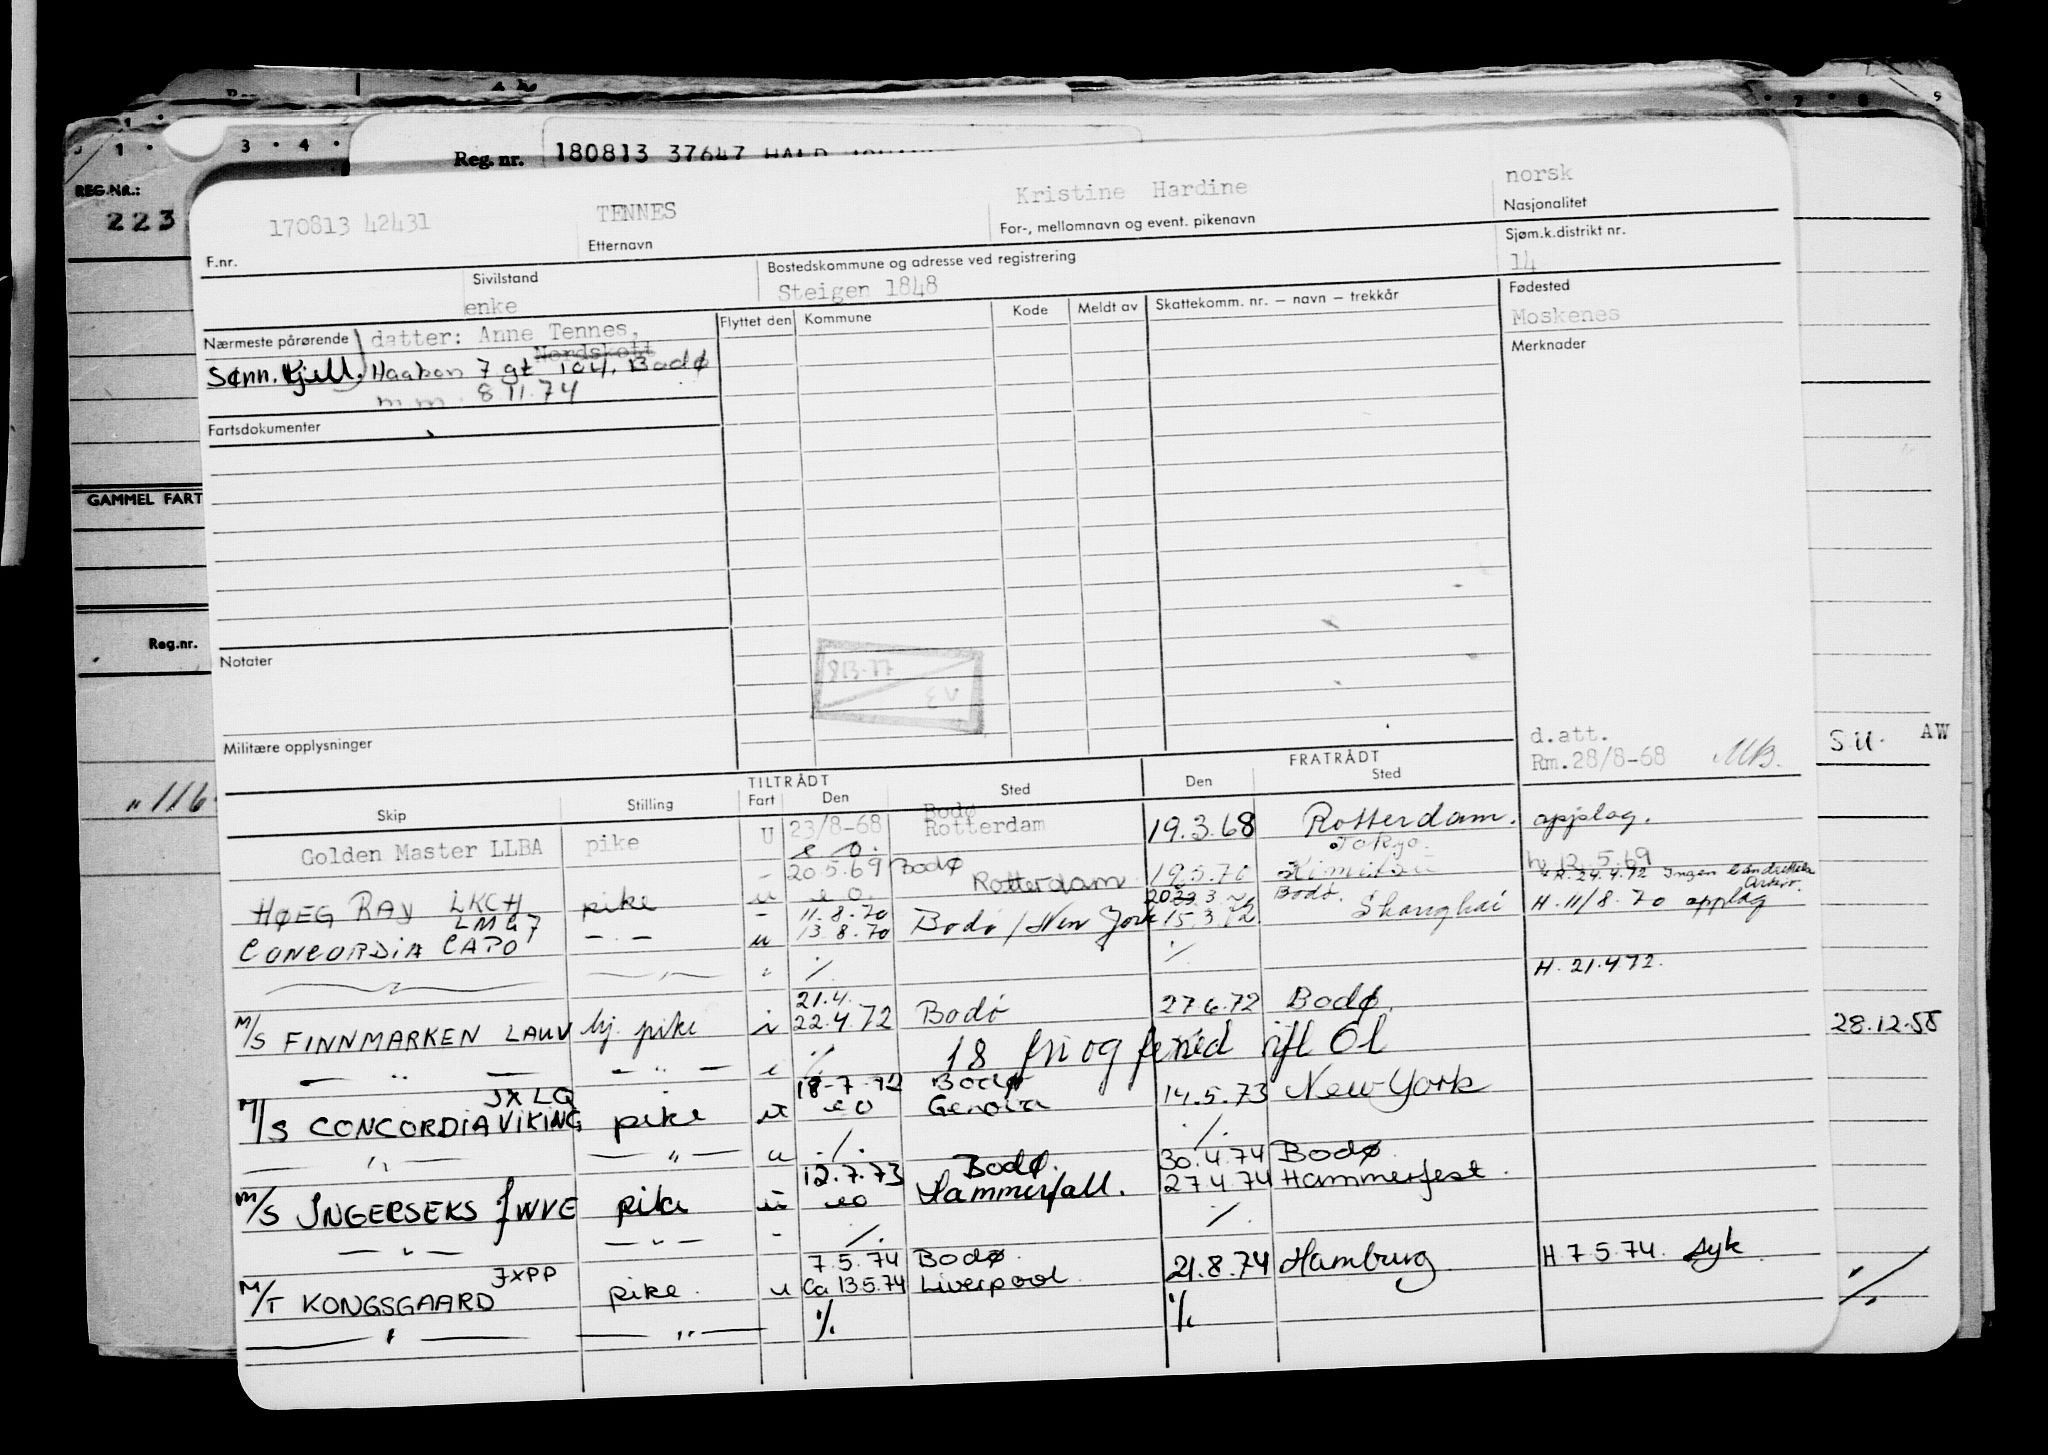 1 · 3 · 4 ·
7 · 8 9
REG.NR.:
223
Reg. nr. 180813 37647 HALD
170813 42431 TENNES Kristine Hardine norsk
F.nr. Etternavn For-, mellomnavn og event. pikenavn Nasjonalitet
Sivilstand Bostedskommune og adresse ved registrering Sjøm.k.distrikt nr.
enke Steigen 1848 14
Nærmeste pårørende datter: Anne Tennes, Flyttet den Kommune Kode Meldt av Skattekomm. nr. – navn – trekkår Fødested
Nordskott Moskenes
Sønn. Kjell. Haakon 7 gt 104. Bodø Merknader
m.m. 8.11.74
Fartsdokumenter
GAMMEL FART
Reg.nr.
Notater
813-77
Militære opplysninger
d.att.
Rm.28/8-68 MB.
S.U. AW
"116
TILTRÅDT FRATRÅDT
Skip Stilling Fart Den Sted Den Sted
Bodø
Golden Master LLBA pike U 23/8-68 Rotterdam 19.3.68 Rotterdam. opplag.
e.o. Tokyo.
- 20.5.69 Bodø h. 12.5.69
HØEG RAY LKCH pike u e.o. Rotterdam 19.5.70 H. 24.4.72 Ingen
LMG7 - 11.8.70 Bodø. H. 11/8.70 opplag
CONCORDIA CAPO - " - u 13.8.70 Bodø / New York 15.3.72 Shanghai
./. ./. H. 21.4.72.
21.4.
M/S FINNMARKEN LAUV hj. pike i 22.4.72 Bodø 27.6.72 Bodø.
— " — — " — i ./. 18 fri og feried
28.12.55
JXLQ 18-7-72 Bodø
M/S CONCORDIA VIKING pike u eo Genova 14.5.73 New York
— " — — " — u ./. ./.
12.7.73 Bodø. 30.4.74 Bodø
M/S INGERSEKS JWVE pike u eo Hammerfall. 27.4.74 Hammerfest.
— " — — " — - ./. ./.
JXPP 7.5.74 Bodø. H 7.5.74. syk
M/T KONGSGAARD pike. u Ca 13.5.74 Liverpool. 21.8.74 Hamburg
— " — — " — ./. ./.
./.